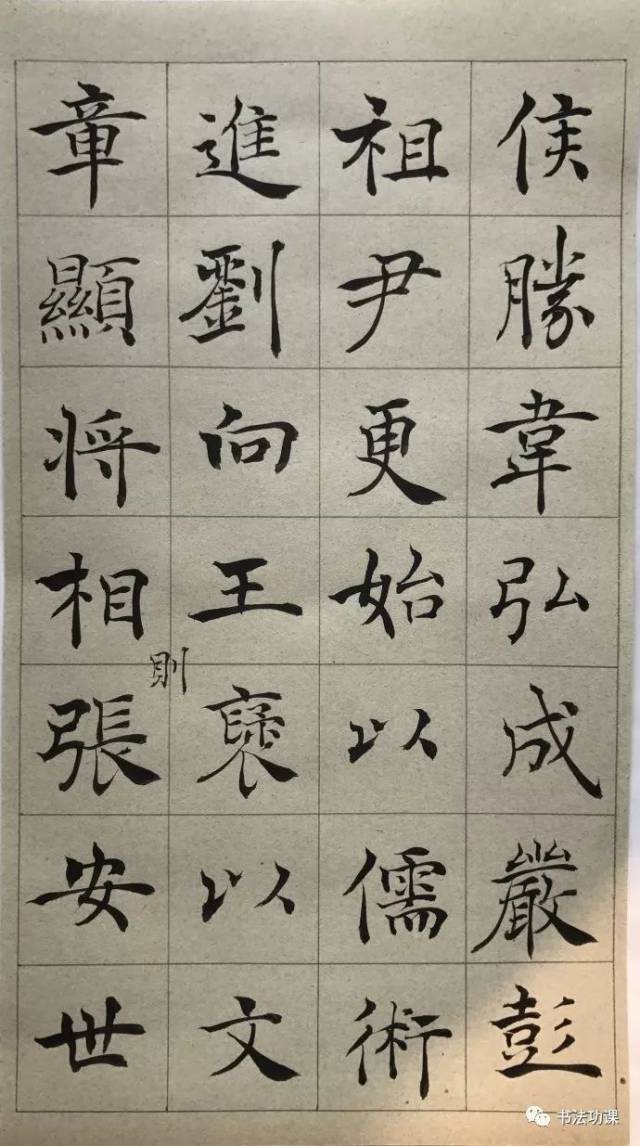 侯勝韋弘成嚴彭
祖尹更始以儒術
進劉向王褒以文
章顯将相則張安世
书法功课